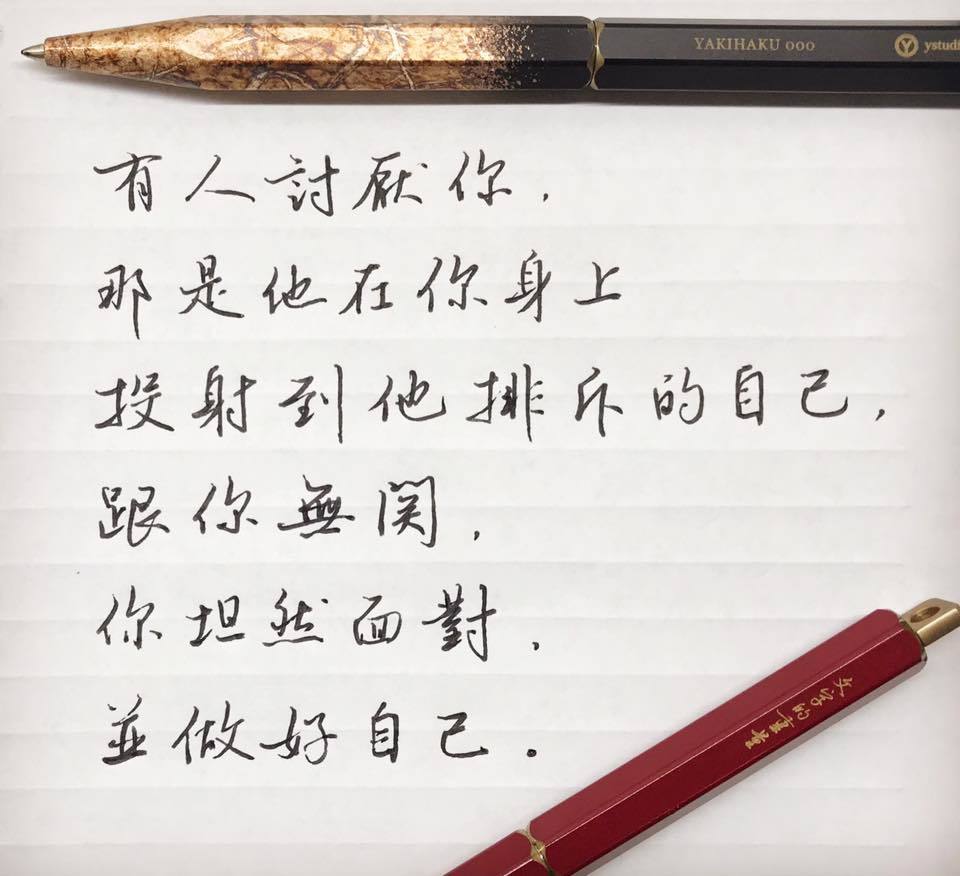 YAKIHAKU 000
ystudi
有人討厭你,
那是他在你身上
投射到他排斥的自己,
跟你無関,
你坦然面對,
並做好自己。
文字的重量